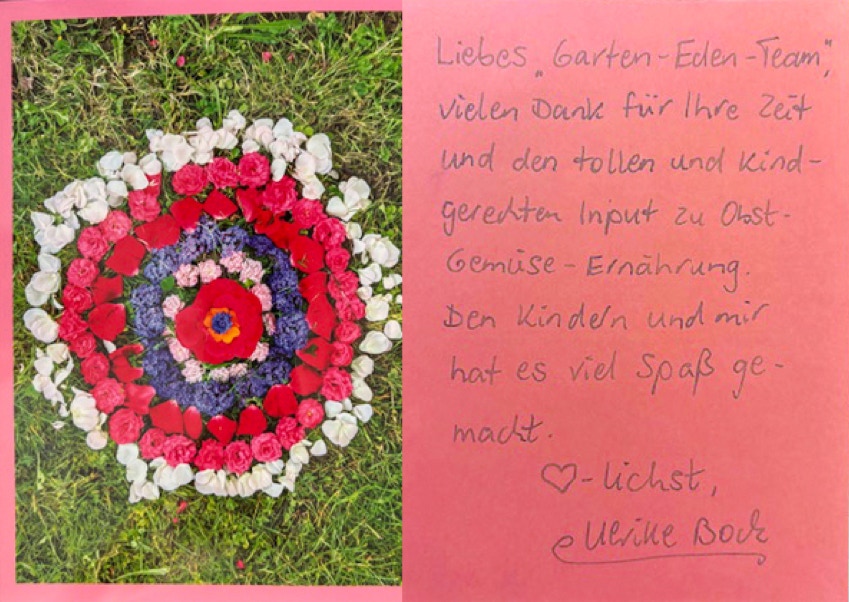 Liebes „Garten-Eden-Team“,
vielen Dank für Ihre Zeit
und den tollen und kind-
gerechten Input zu Obst-
Gemüse-Ernährung.
Den Kindern und mir
hat es viel Spaß ge-
macht.
♡-lichst,
Ulrike Bock